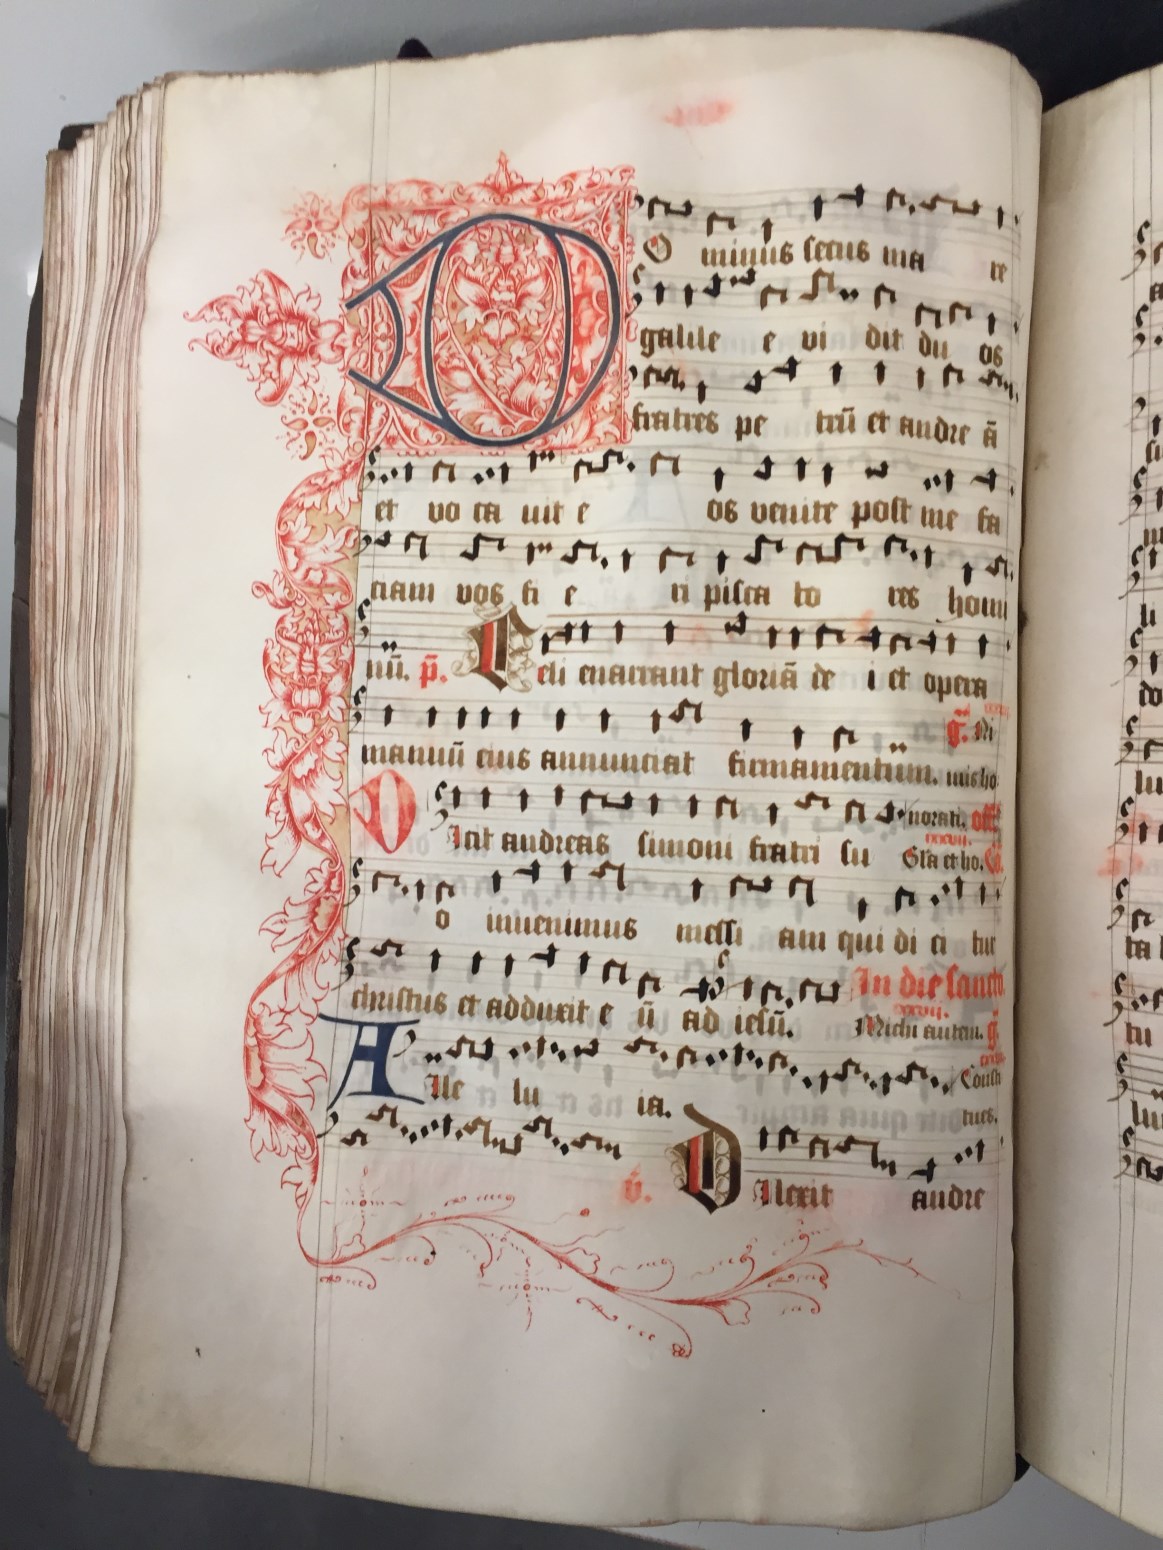 DOminus secus ma re
galile e vi dit du os
fratres pe trū et andre ā
et vo ca uit e os venite post me fa
ciam vos fi e ri pisca to res homi
nū. p̄. Celi enarrant gloriā de i et opera
manuū eius annunciat firmamentum. g̃. Ni
mis ho
norati. off
DIcit andreas simoni fratri su xxxvii.
Gl̄a et ho. Co.
o inuenimus messi am qui di ci tur
christus et adduxit e ū ad iesū. In die sancto
xxxvii.
Michi autem. g̃.
Alle lu ia. Consti
tues.
v̄. DIlexit andre